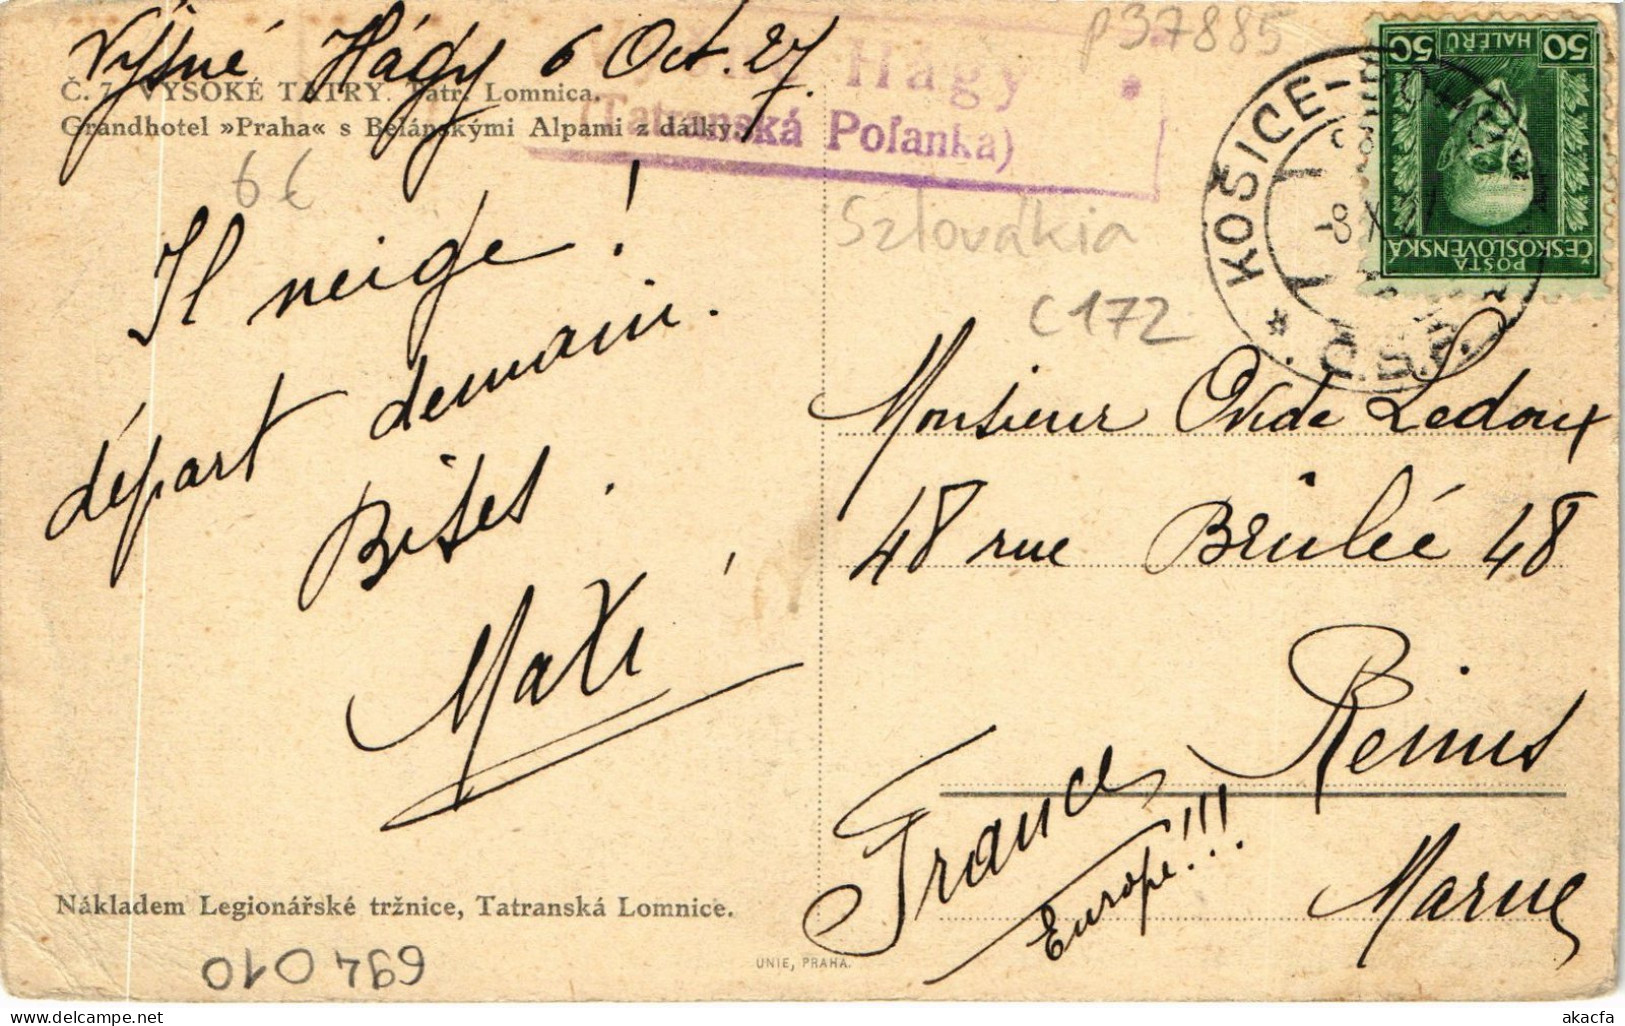 Vyšné Hágy 6 Oct. 27.
Č. 7. VYSOKÉ TATRY. Tatr. Lomnica.
Grandhotel »Praha« s Belánskými Alpami z dálky.
Vyšné Hágy
(Tatranská Poľanka)
p37885
6€
Szlovákia
C172
KOŠICE-
Č.S.R.
-8 X 27
50 HALÉŘŮ 50
POŠTA
ČESKOSLOVENSKÁ
Il neige!
départ demain.
Bises.
Maxi
Monsieur Ovide Ledoux
48 rue Brûlée 48
Reims
Marne
France
Europe!!!
Nákladem Legionářské tržnice, Tatranská Lomnice.
694010
UNIE, PRAHA.
akacfa